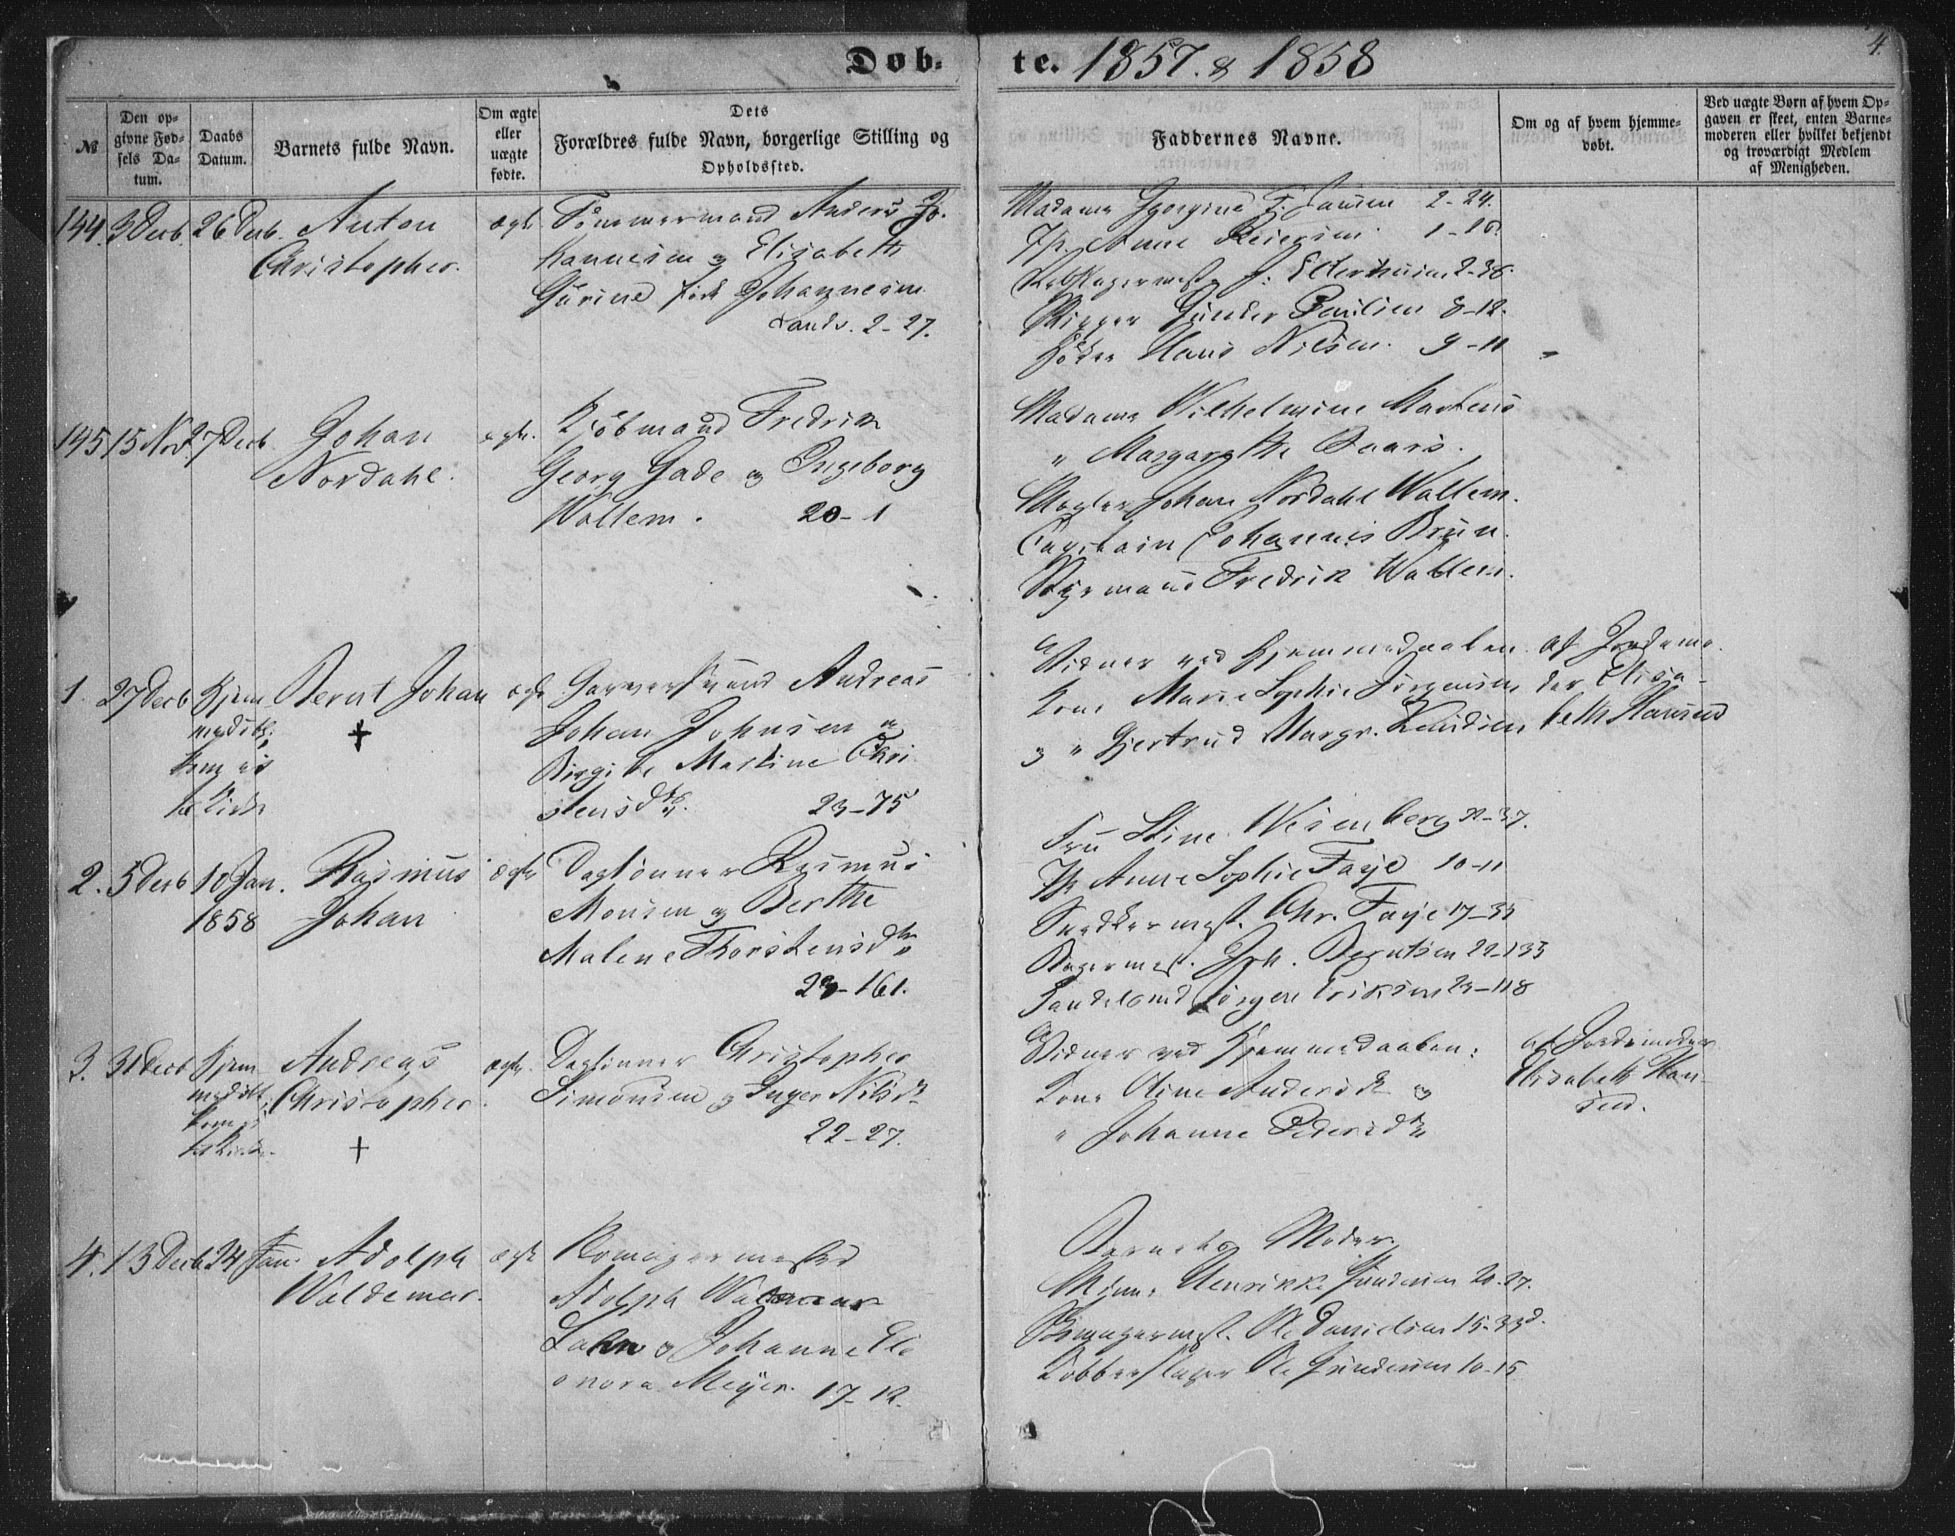 Døb-te. 1857. & 1858
4.
№
Den opgivne Fødsels Datum.
Daabs Datum.
Barnets fulde Navn.
Om ægte eller uægte fødte.
Dets Forældres fulde Navn, borgerlige Stilling og Opholdssted.
Faddernes Navne.
Om og af hvem hjemmedøbt.
Ved uægte Børn af hvem Opgaven er skeet, enten Barnemoderen eller hvilket bekjendt og troværdigt Medlem af Menigheden.
144. 3 Decb. 26 Decb. Anton
Christopher.
ægte
Tømmermand Anders Jo-
hannesen og Elisabeth
Gurine født Johannesen
Sandv. 2-27.
Madame Georgine F. Jansen 2-24.
Jfr. Anne Reiersen 1-18.
J. Ellertsen 2-36.
Skipper Gunder Paulsen 8-12.
Bødker Hans Nilsen. 9-11
145 15 Nov. 27 Decb Johan
Nordahl.
ægte.
Kjøbmand Fredrik
Georg Gade og Ingeborg
Wallem. 20-1
Madame Wilhelmine Martens
" Margarethe Baars.
Mægler Johan Nordahl Wallem.
Capitain Johannes Brun.
Styrmand Fredrik Wallem.
1. 27 Decb Hjem
medøbt,
kom ei
til Kirke
Bernt Johan
+
ægte
Garversvend Andreas
Johan Johnsen og
Birgitte Martine Chri
stensdtr. 23-75
Vidner ved Hjemmedaaben
Kone Marie Sophie Jørgensen
og " Gjertrud Margr. Knudsen
af Jordemo-
der Elisa-
beth Hansen
2. 5 Decb 10 Jan.
1858
Rasmus
Johan
ægte
Daglønner Rasmus
Monsen og Berthe
Malene Thorstensdtr
23-161.
Fru Stine Wesenberg -37.
Jfr Anne Sophie Faye 10-11
Snedkermest. Chr. Faye 17-35
Bagermest. Joh. Berntsen 22-133
Handelsmd Jørgen Eriksen 23-118
3. 31 Decb Hjem
medøbt,
kom ei
til Kirke.
Andreas
Christopher.
+
ægte.
Daglønner Christopher
Simonsen og Inger Nilsdtr
22-27.
Vidner ved Hjemmedaaben:
Kone Oline Andersdtr og
" Johanne Pedersdtr
af Jordemoder
Elisabeth Han-
sen.
4. 13 Decb 24 Jan. Adolph
Waldemar.
ægte
Bomagermester
Adolph Waldemar
Lahn og Johanne Ele
onora Meyer. 17-12.
Barnets Moder.
Henrikke Gundersen 20-27.
Ole Danielsen 15-33d.
Kobberslager Ole Gundersen 10-15